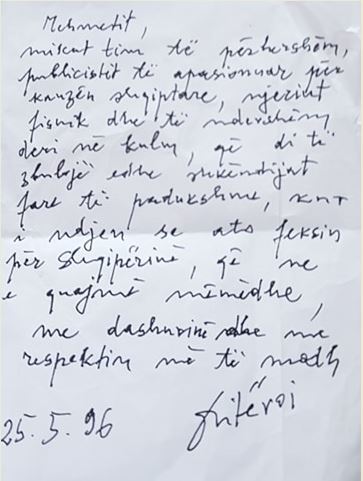 Mehmetit,
mikut tim të përhershëm,
publicistit të apasionuar për
kauzën shqiptare, njeriut
fisnik dhe të ndershëm
deri në kulm, që di të
zbulojë edhe shkëndijat
fare të padukshme, kur
i ndjen se ato feksin
për Shqipërinë, që ne
e quajmë mëmëdhe,
me dashurinë dhe me
respektin më të madh
25.5.96